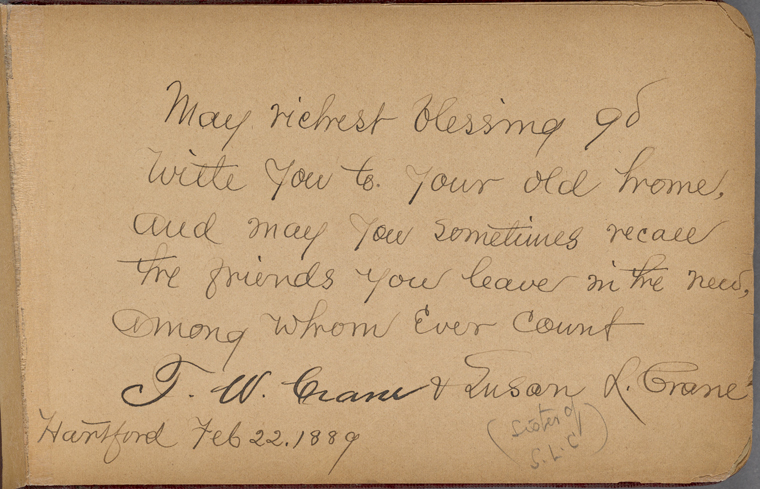 May richest blessing go
with you to your old home,
and may you sometimes recall
the friends you leave in the new,
among whom Ever count
T. W. Crane & Susan L. Crane
Hartford Feb 22. 1889
(Sister of
S. L. C)